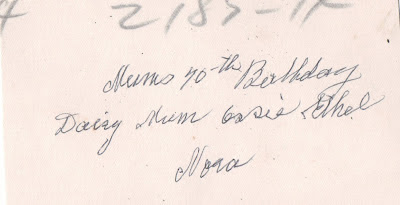 2183-14
Mums 70th Birthday
Daisy Mum Essie Ethel
Nora